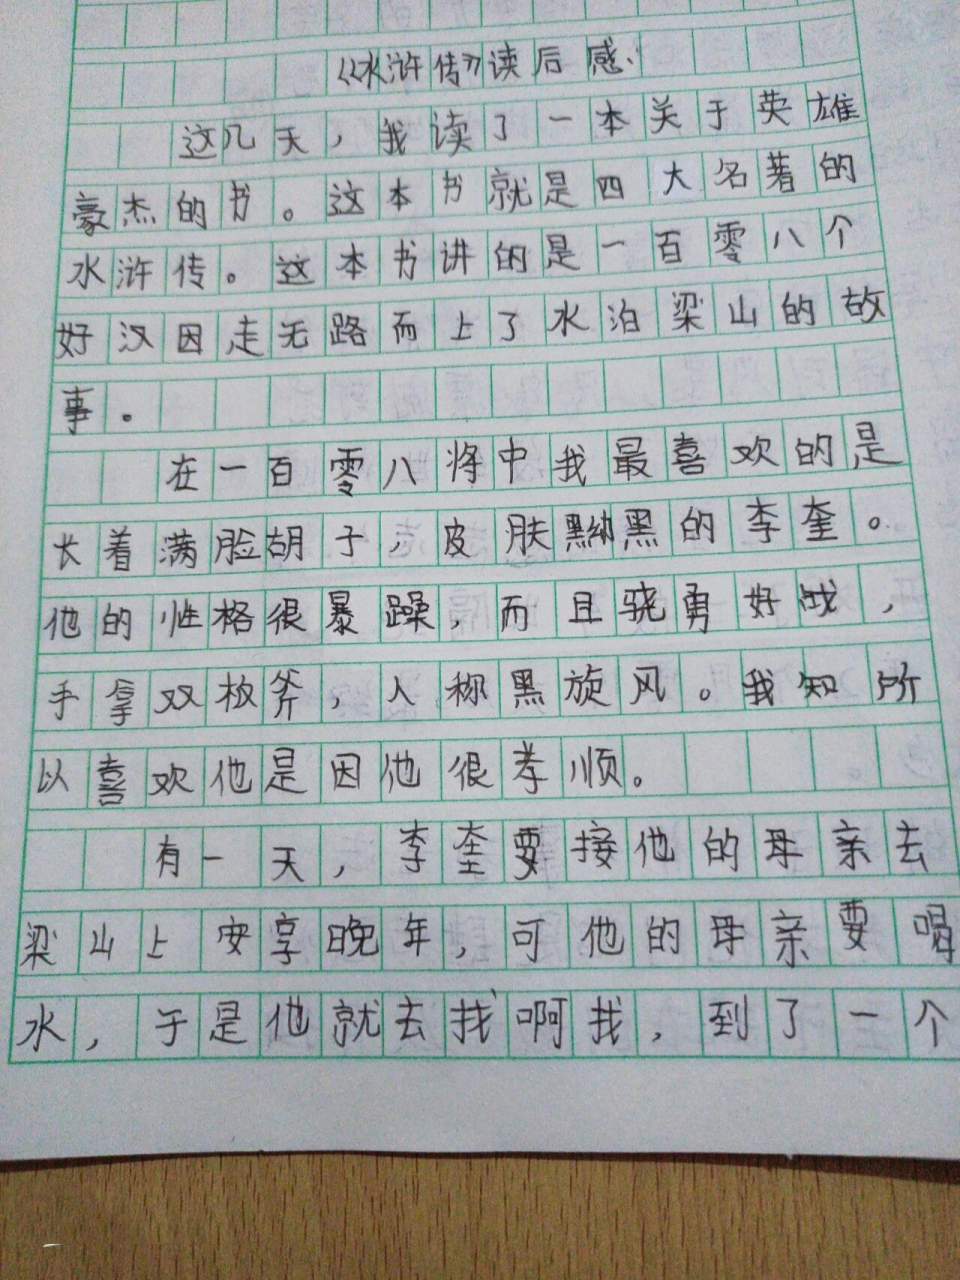 《水浒传》读后感
这几天，我读了一本关于英雄
豪杰的书。这本书就是四大名著的
水浒传。这本书讲的是一百零八个
好汉因走无路而上了水泊梁山的故
事。
在一百零八将中我最喜欢的是
长着满脸胡子，皮肤黝黑的李奎。
他的性格很暴躁，而且骁勇好战，
手拿双板斧，人称黑旋风。我知所
以喜欢他是因他很孝顺。
有一天，李奎要接他的母亲去
梁山上安享晚年，可他的母亲要喝
水，于是他就去找啊找，到了一个